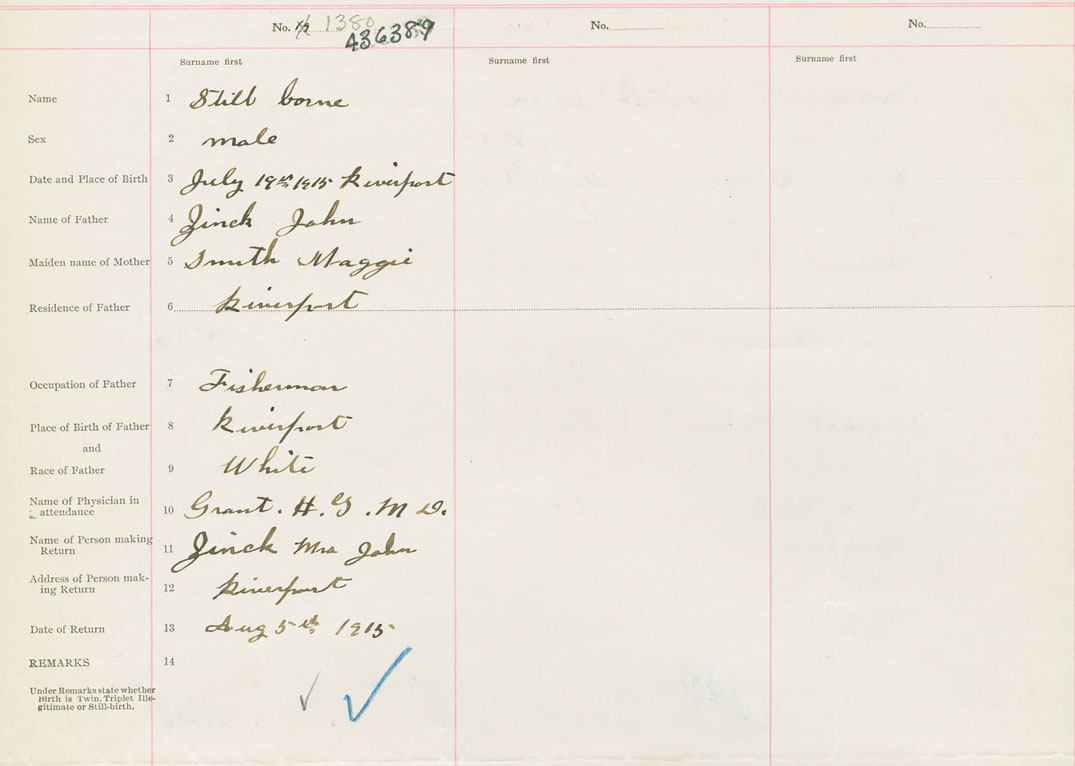 No. 1380 No. No.
436389
Surname first Surname first Surname first
Name 1 Still borne
Sex 2 male
Date and Place of Birth 3 July 19th 1915 Riverport
Name of Father 4 Zinck John
Maiden name of Mother 5 Smith Maggie
Residence of Father 6 Riverport
Occupation of Father 7 Fisherman
Place of Birth of Father 8 Riverport
and
Race of Father 9 White
Name of Physician in
attendance 10 Grant. H. G. M D.
Name of Person making
Return 11 Zinck Mrs John
Address of Person mak-
ing Return 12 Riverport
Date of Return 13 Aug 5th 1915
REMARKS 14
Under Remarks state whether
Birth is Twin, Triplet, Ille-
gitimate or Still-birth.